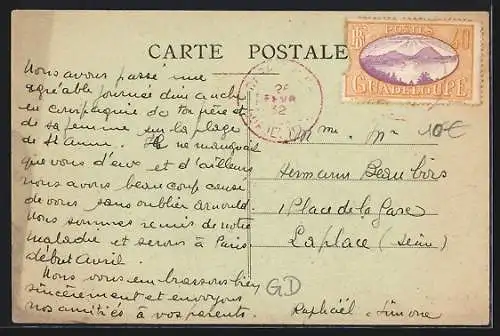 CARTE POSTALE
POSTES
RF 40
GUADELOUPE
26
FEVR
32
Nous avons passé une
agréable journée dimanche
en compagnie de ton père et
de sa femme sur la plage
de St Anne. Il ne manquait
que vous d'eux et d'ailleurs
nous avons beaucoup causé
de vous sans oublier Arnould.
Nous sommes remis de notre
maladie et serons à Paris
début Avril.
Nous vous embrassons bien
sincèrement et envoyons
nos amitiés à vos parents.
Mme. Mr
10€
Hermann Beaubois
1 Place de la Gare
Laplace (Seine)
GD
Raphaël - Simone